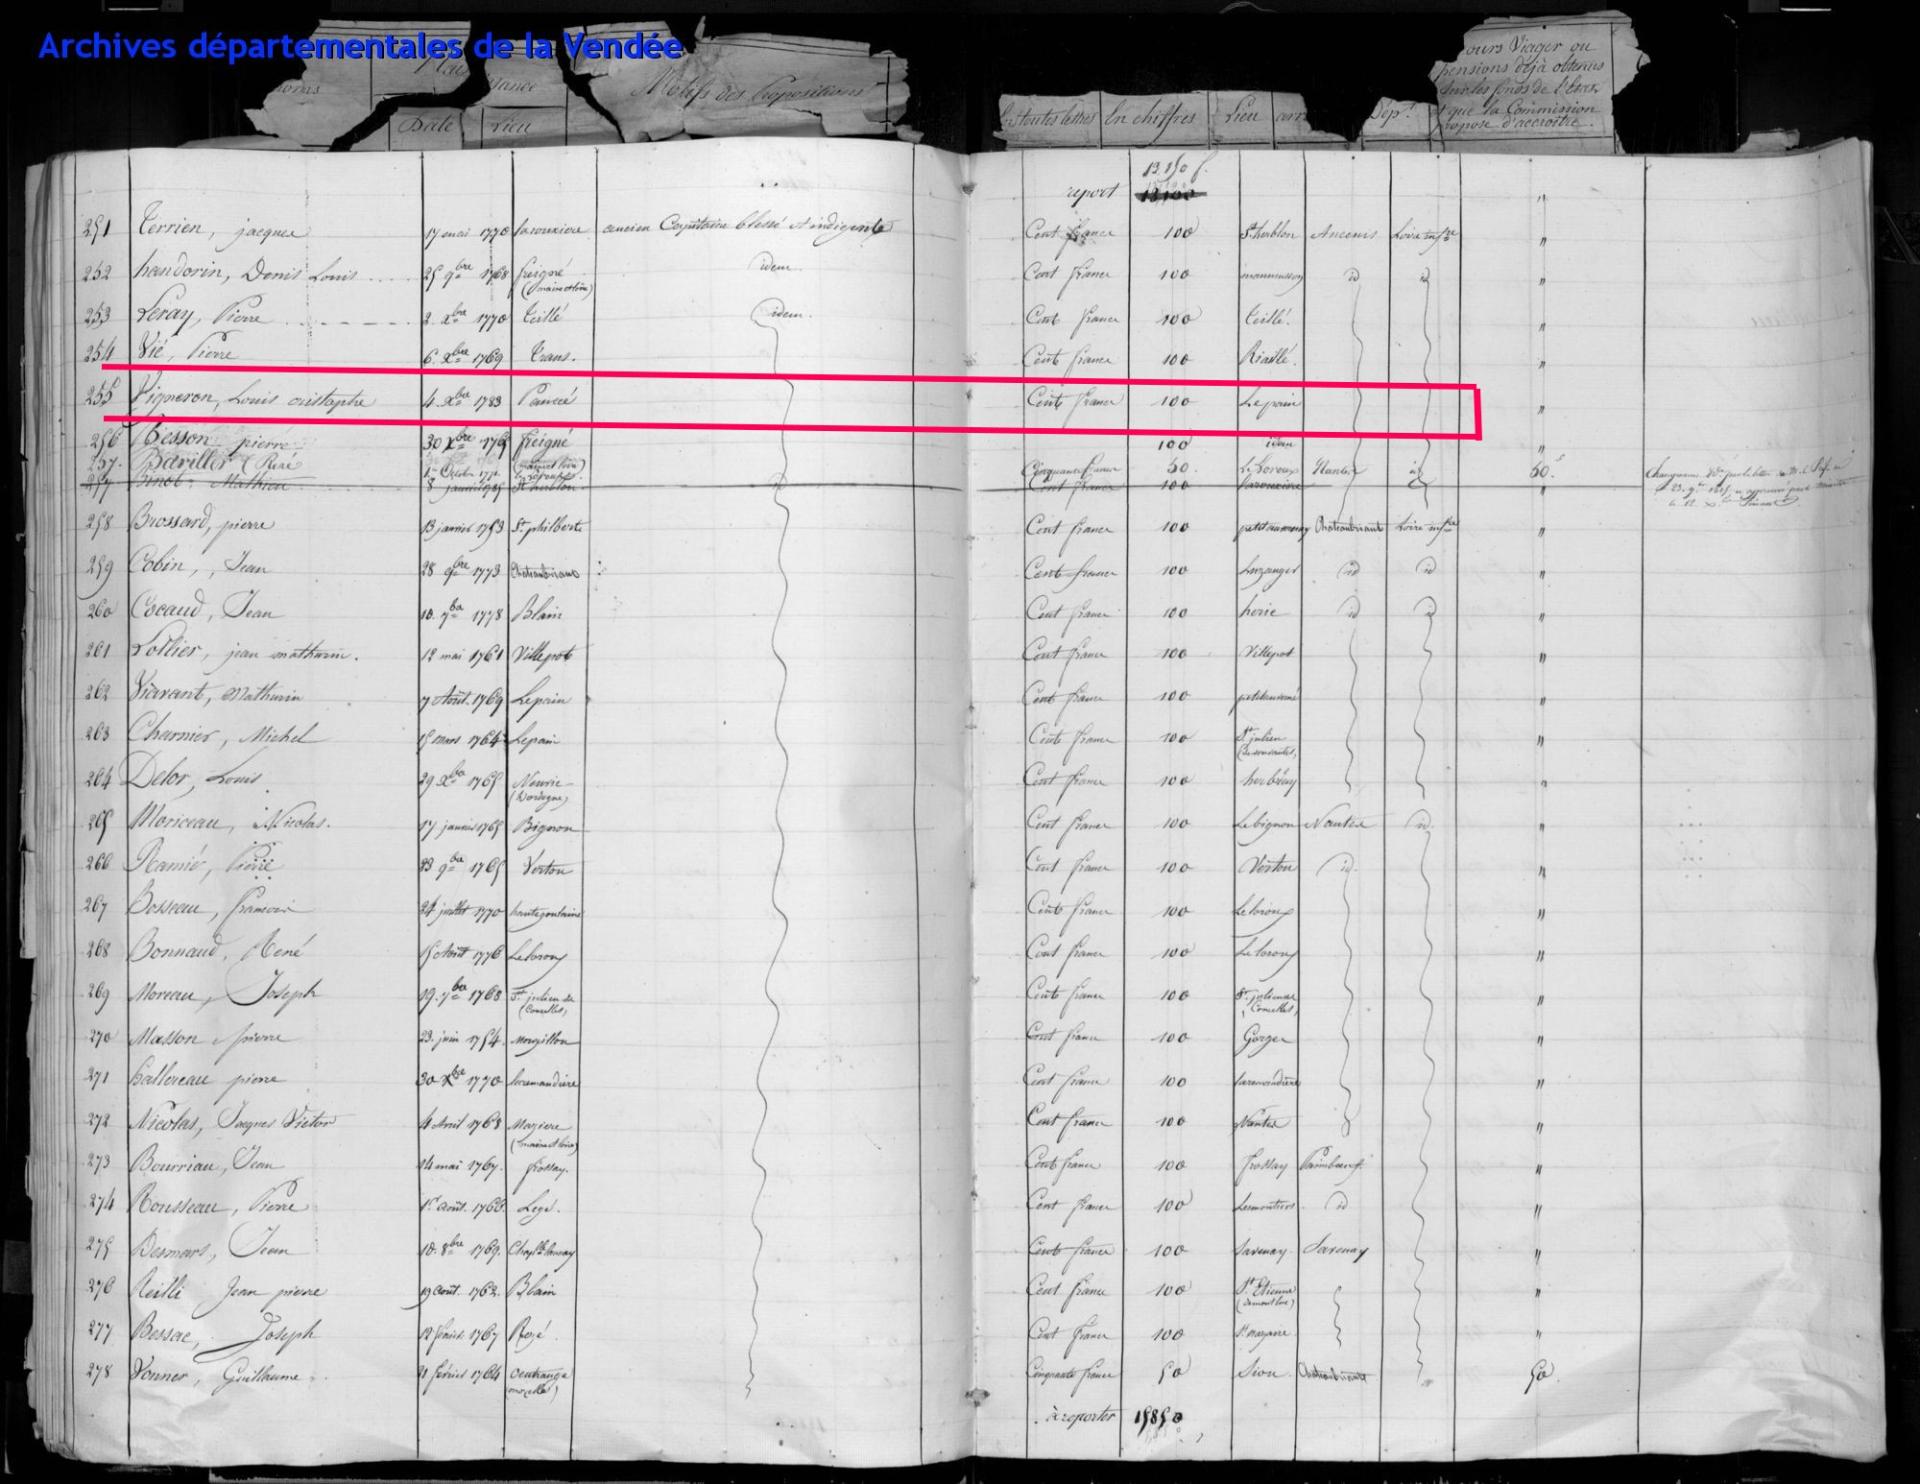 Archives départementales de la Vendée
Date Lieu
Motifs des Propositions
En toutes lettres En chiffres Lieu Dép.t
ours Viager ou
pensions déjà obtenus
sur les fonds de l'État
et que la Commission
propose d'accroître.
13,150 f.
report 13,100
251 Terrien, jacques 17 mai 1770 larouxiere ancien Capitaine blessé et indigent Cent francs 100 St. herblon Ancenis Loire infre "
252 handorin, Denis Louis 25 9bre 1768 freigné (maine et loire) idem Cent francs 100 id id "
253 Leray, Pierre 2 Xbre 1770 Teillé idem. Cent francs 100 Teillé. "
254 Vié, Pierre 6 Xbre 1769 Trans. Cent francs 100 Riaillé. "
255 Vigneron, Louis cristophe 4 Xbre 1783 Pannecé Cent francs 100 Le pain "
256 Besson pierre 30 Xbre freigné (maine et loire) 100 idem "
257 Baviller René 1er Octobre Cinquante francs 50. Le Loroux Nantes id 50.
257 Binot Mathieu 8 janvier St herblon Cent francs 100 larouxiere
258 Brossard, pierre 13 janvier 1753 St philberte Cent francs 100 petit auverney Chateaubriant Loire infre "
259 Cobin, Jean 28 9bre 1773 Chateaubriant Cent francs 100 Luzanger id id "
260 Cocaud, Jean 10. 7bre 1778 Blain Cent francs 100 herie id id "
261 Lollier, jean mathurin. 12 mai 1761 Villepot Cent francs 100 Villepot "
262 Viavant, Mathurin 7 Août 1769 Lepain Cent francs 100 "
263 Charnier, Michel 15 mars 1764 Lepain Cent francs 100 St julien (de vouvantes) "
264 Delor, Louis 29 Xbre 1765 (Dordogne) Cent francs 100 "
265 Moriceau, Nicolas. 17 janvier 1765 Bignon Cent francs 100 Le bignon Nantes id. "
266 Ramié, Pierre 23 9bre 1765 Verton Cent francs 100 Verton id. "
267 Bosseau, francois 24 juillet 1770 hautegoulaine Cent francs 100 Le loroux "
268 Bonnaud, René 15 Août 1776 Leloroux Cent francs 100 Le loroux "
269 Moreau, Joseph 19. 7bre 1768 St julien de (Concelles) Cent francs 100 St julien de (Concelles) "
270 Masson pierre 23. juin 1754 mouzillon Cent francs 100 Gorges "
271 hallereau pierre 30 Xbre 1770 laremaudiere Cent francs 100 laremaudiere "
272 Nicolas, Jacques Victor 4 Avril 1763 Maziere (maine et loire) Cent francs 100 Nantes "
273 Bourriau, Jean 14 mai 1767. frossay. Cent francs 100 frossay Paimboeuf. "
274 Rousseau, Pierre 1er août. 1766. Legé. Cent francs 100 Lesmoutiers id "
275 Desmars, Jean 10. 8bre 1769. Chaplle launay Cent francs 100 Savenay Savenay "
276 Reilli Jean pierre 19 août. 1762. Blain Cent francs 100 St. Etienne (demontluc) "
277 Bessac, Joseph 12 février 1767 Rezé. Cent francs 100 St nazaire "
278 Vonner, Guillaume 21 février 1764 oeutrange (mozelle) Cinquante francs 50 Sion Chateaubriant 50.
à reporter 15850